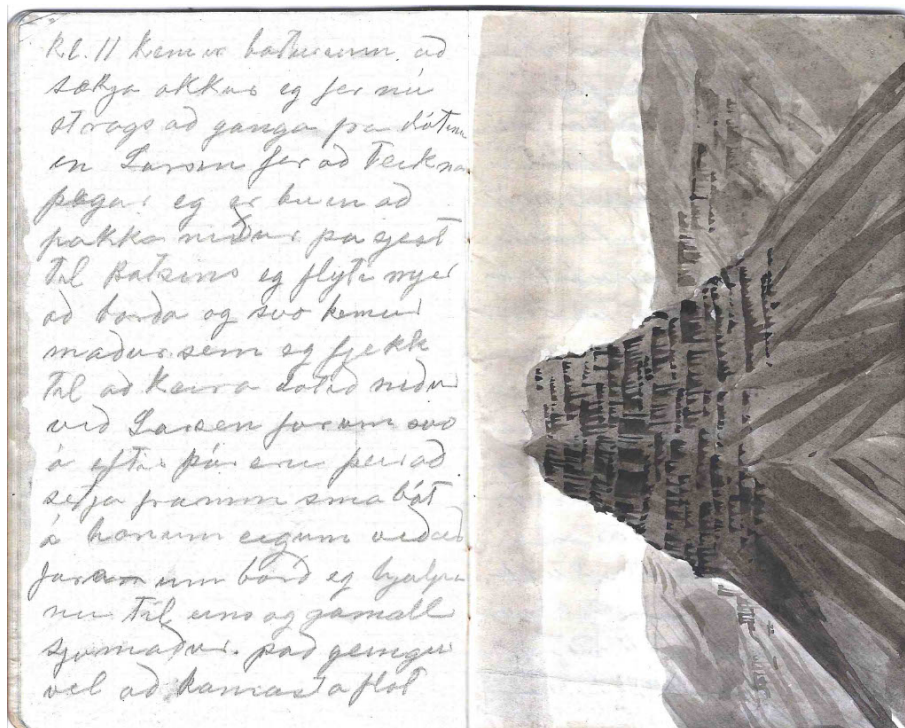 kl. 11 kemur baturinn að
sækja okkur eg fer nú
strags að ganga frá dótinu
en Larsen fer að teikna
þegar eg er buin að
pakka niður þa
til Batsins eg flyti mjer
að borða og svo kemur
maður sem eg fjekk
til að keira dotið niður
við Larsen forum svo
á eftir þár eru peir að
setja framm smábát
á honum eigum við að
fara um borð eg hjalpa
nu til eins og gamall
sjomaður. það gengur
vel að komast a flot